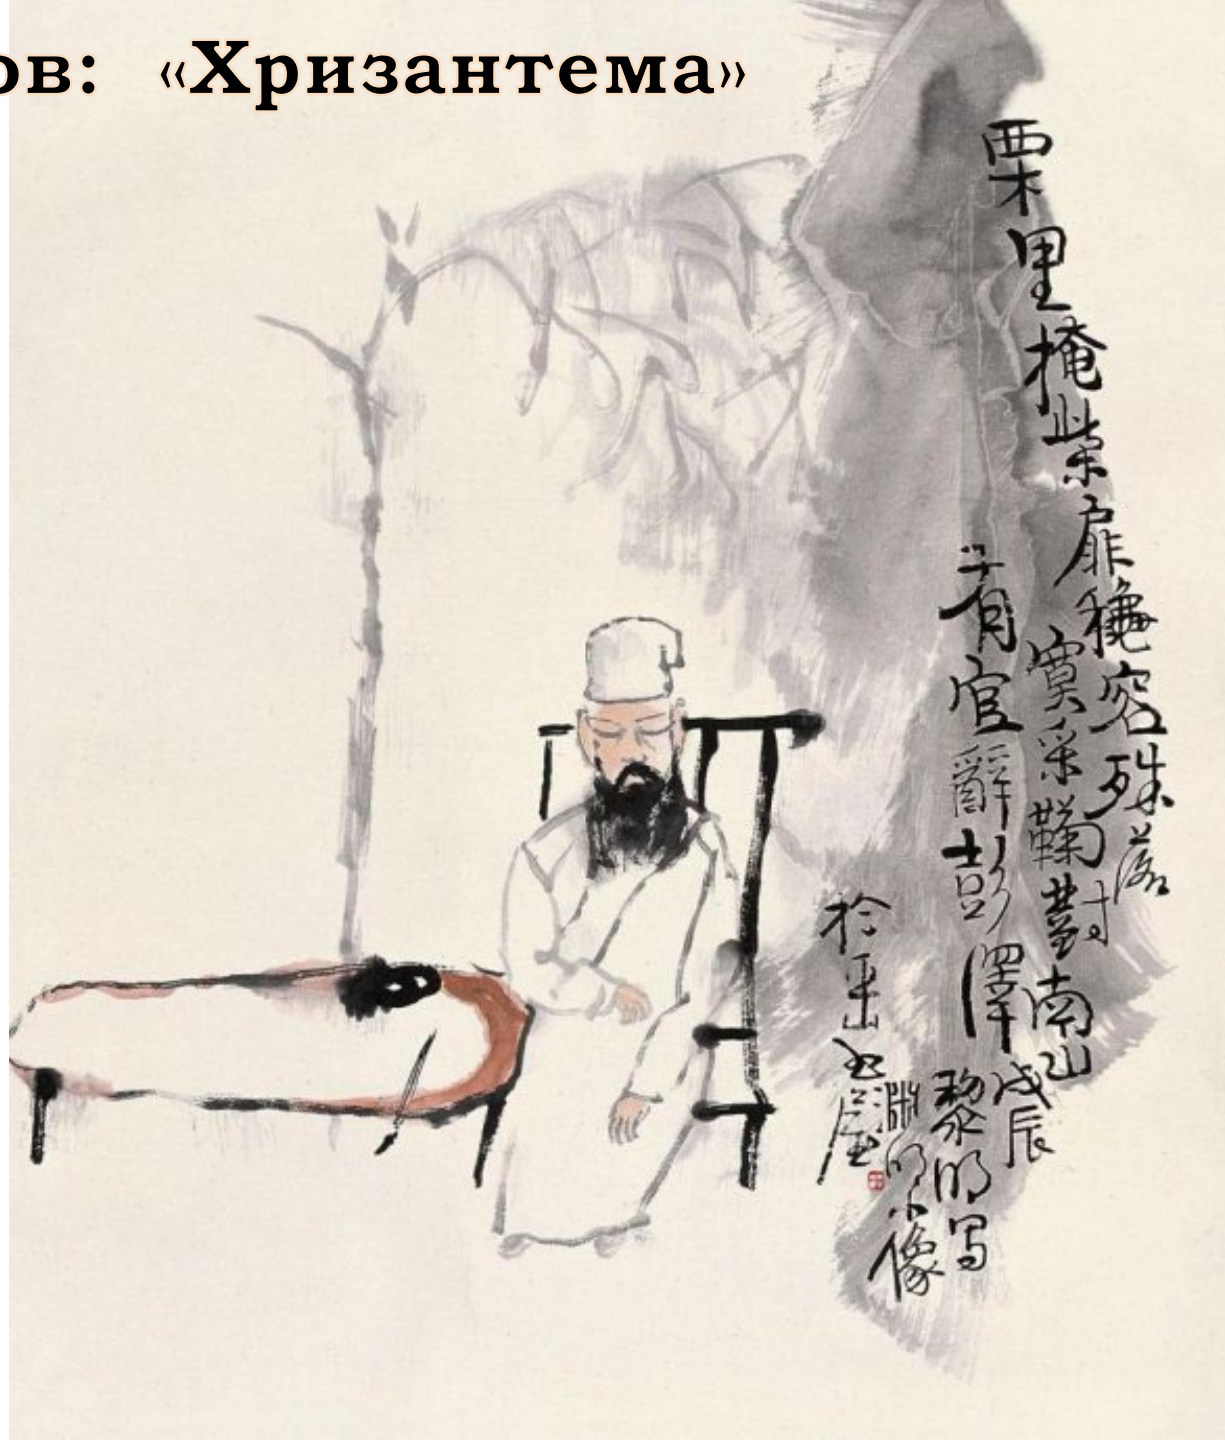 ов: «Хризантема»
栗里掩柴扉穐容殊落
寞采鞠對南山戊辰
有官辭彭澤黎明写
淵明小像
於